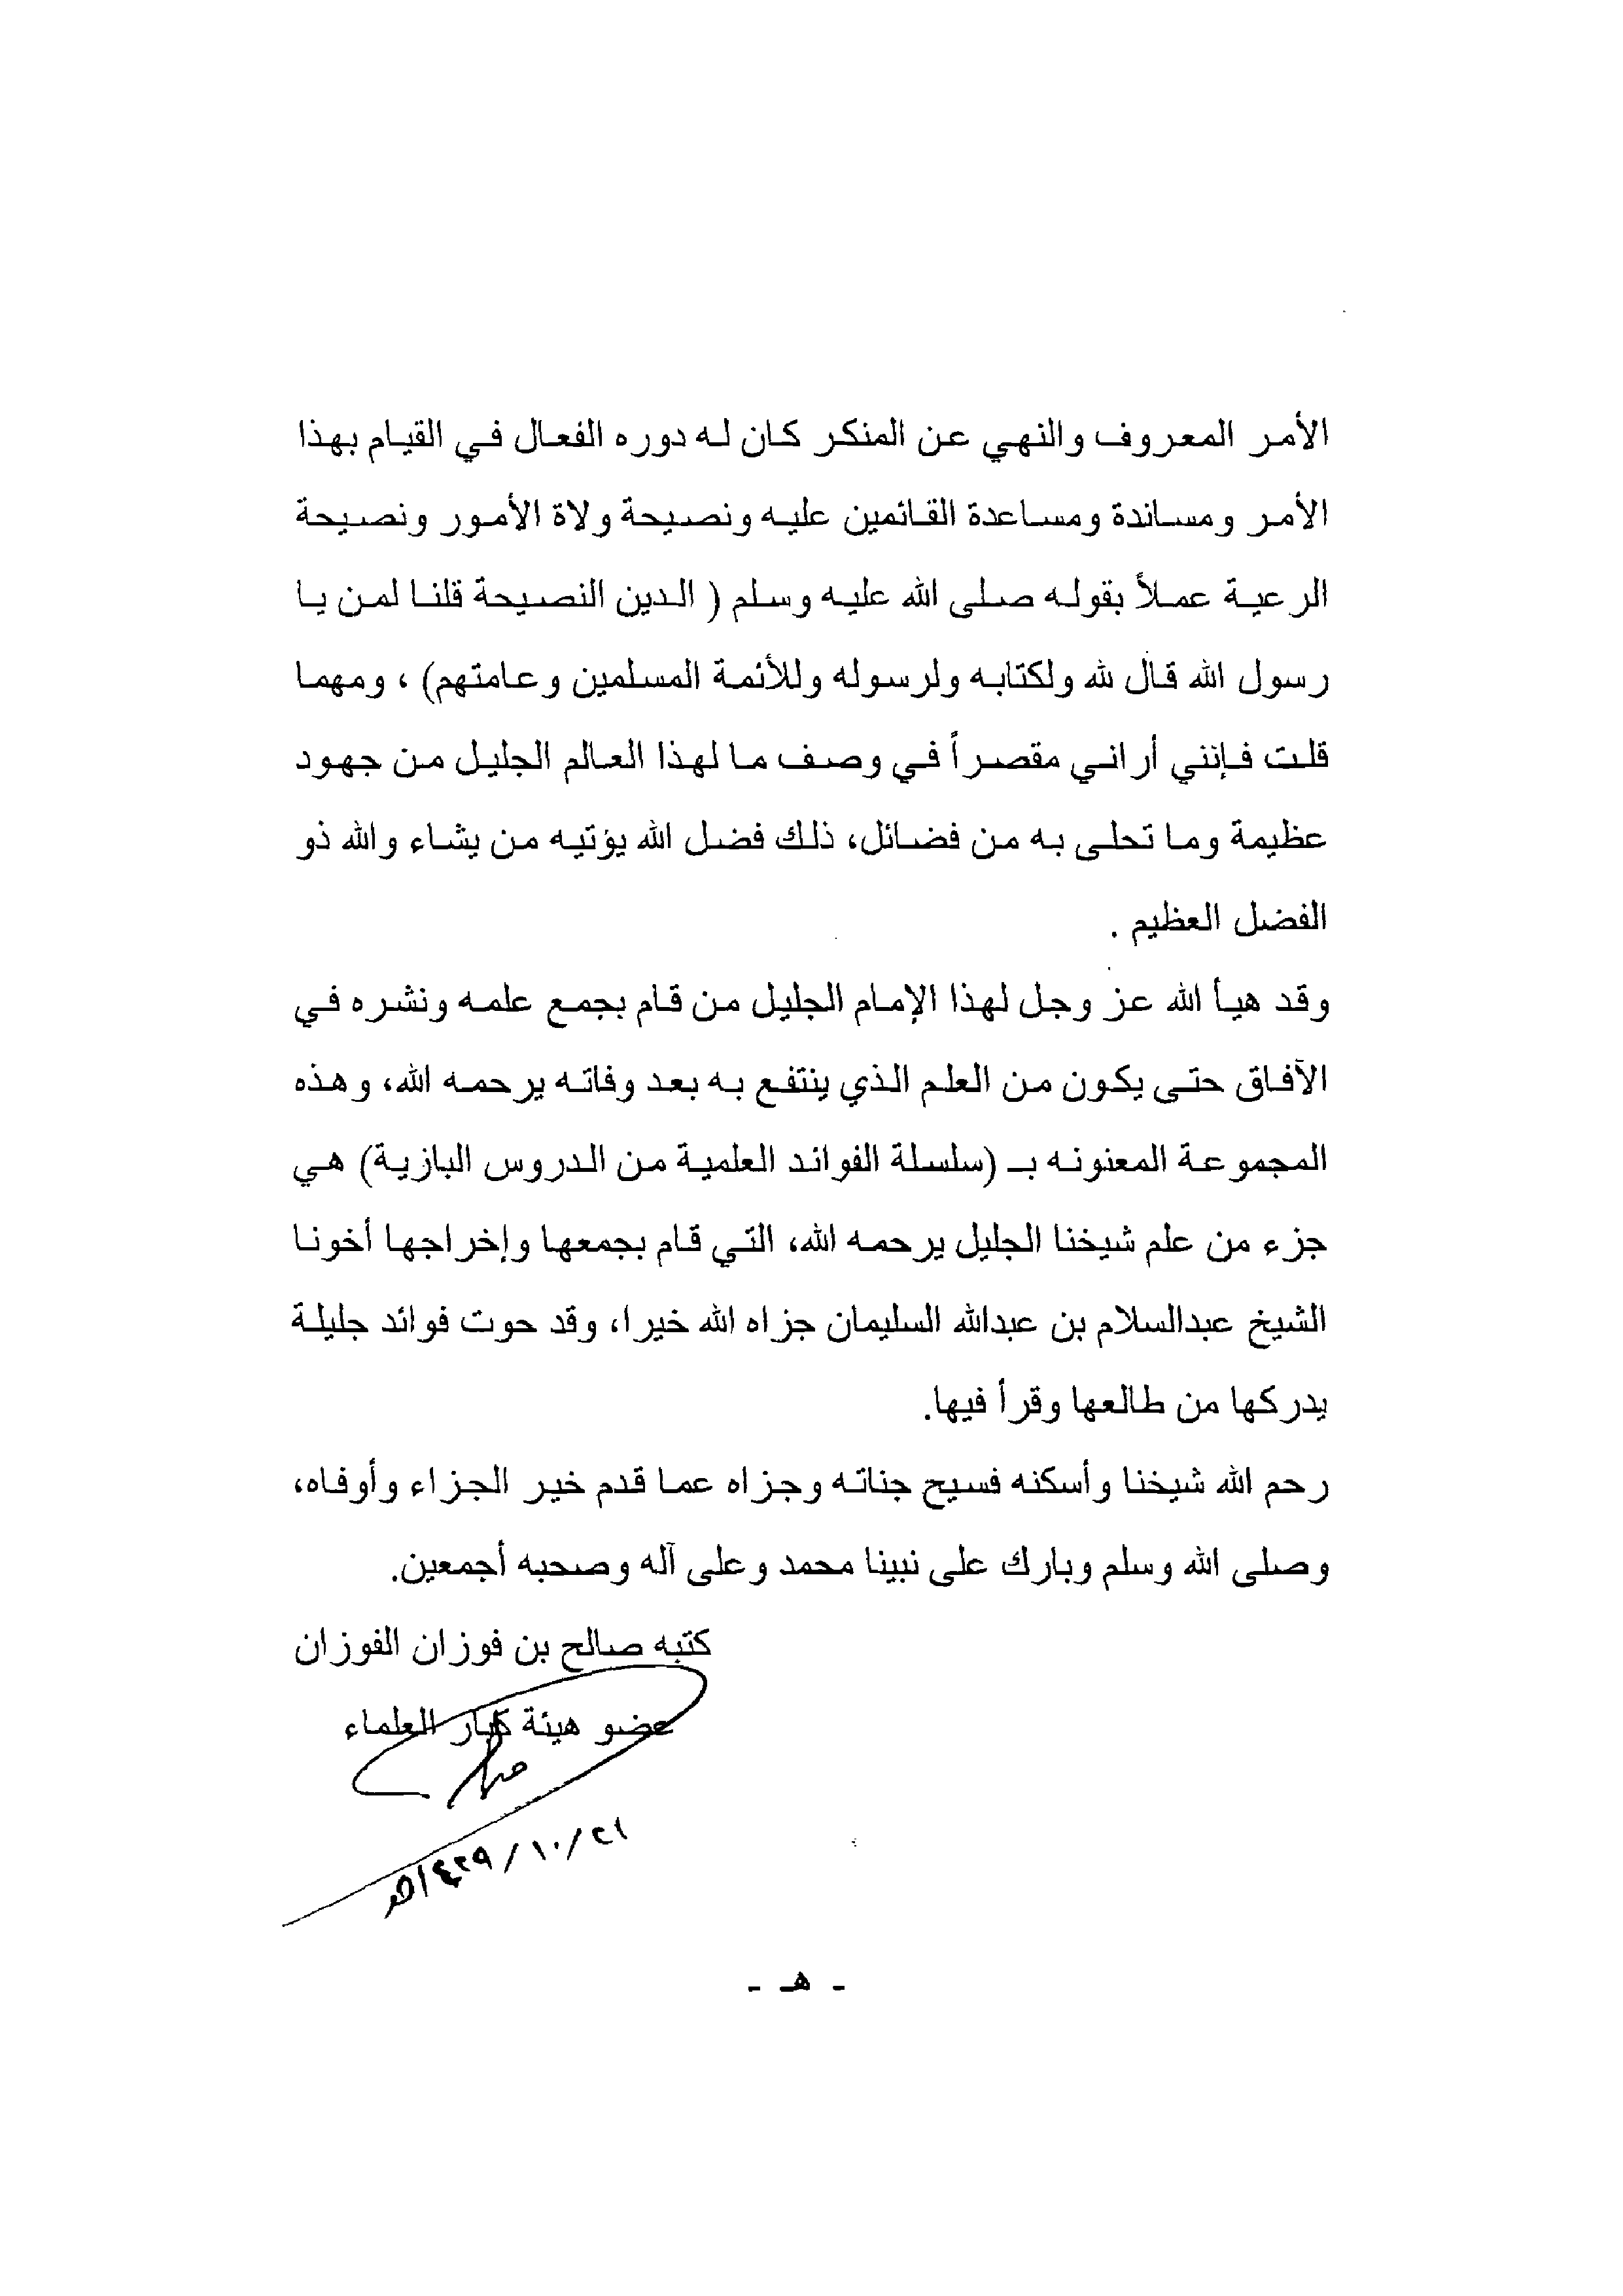 الأمر المعروف والنهي عن المنكر كان له دوره الفعال في القيام بهذا
الأمر ومساندة ومساعدة القائمين عليه ونصيحة ولاة الأمور ونصيحة
الرعية عملاً بقوله صلى الله عليه وسلم ( الدين النصيحة قلنا لمن يا
رسول الله قال لله ولكتابه ولرسوله وللأئمة المسلمين وعامتهم) ، ومهما
قلت فإنني أراني مقصراً في وصف ما لهذا العالم الجليل من جهود
عظيمة وما تحلى به من فضائل، ذلك فضل الله يؤتيه من يشاء والله ذو
الفضل العظيم .
وقد هيأ الله عز وجل لهذا الإمام الجليل من قام بجمع علمه ونشره في
الآفاق حتى يكون من العلم الذي ينتفع به بعد وفاته يرحمه الله، وهذه
المجموعة المعنونه بـ (سلسلة الفوائد العلمية من الدروس البازية) هي
جزء من علم شيخنا الجليل يرحمه الله، التي قام بجمعها وإخراجها أخونا
الشيخ عبدالسلام بن عبدالله السليمان جزاه الله خيرا، وقد حوت فوائد جليلة
يدركها من طالعها وقرأ فيها.
رحم الله شيخنا وأسكنه فسيح جناته وجزاه عما قدم خير الجزاء وأوفاه،
وصلى الله وسلم وبارك على نبينا محمد وعلى آله وصحبه أجمعين.
كتبه صالح بن فوزان الفوزان
عضو هيئة كبار العلماء
٢١/١٠/١٤٢٩هـ
- هـ -